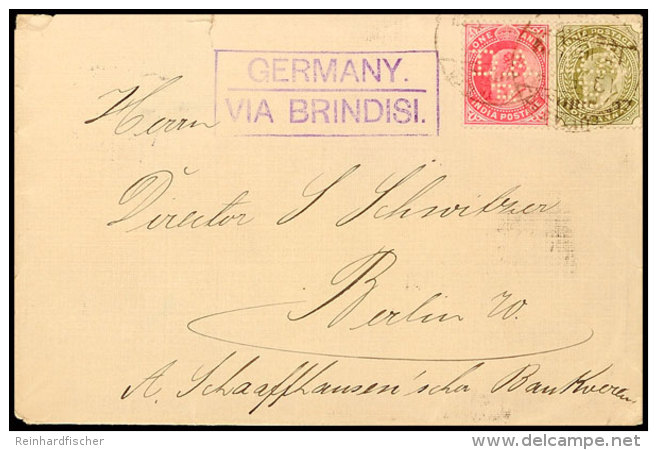 GERMANY.
VIA BRINDISI.
ONE ANNA
INDIA POSTAGE
INDIA POSTAGE
Herrn
Director S Schwitzer
Berlin W.
A. Schaaffhausen'scher Bankverein
Reinhardfischer
delcampe.net